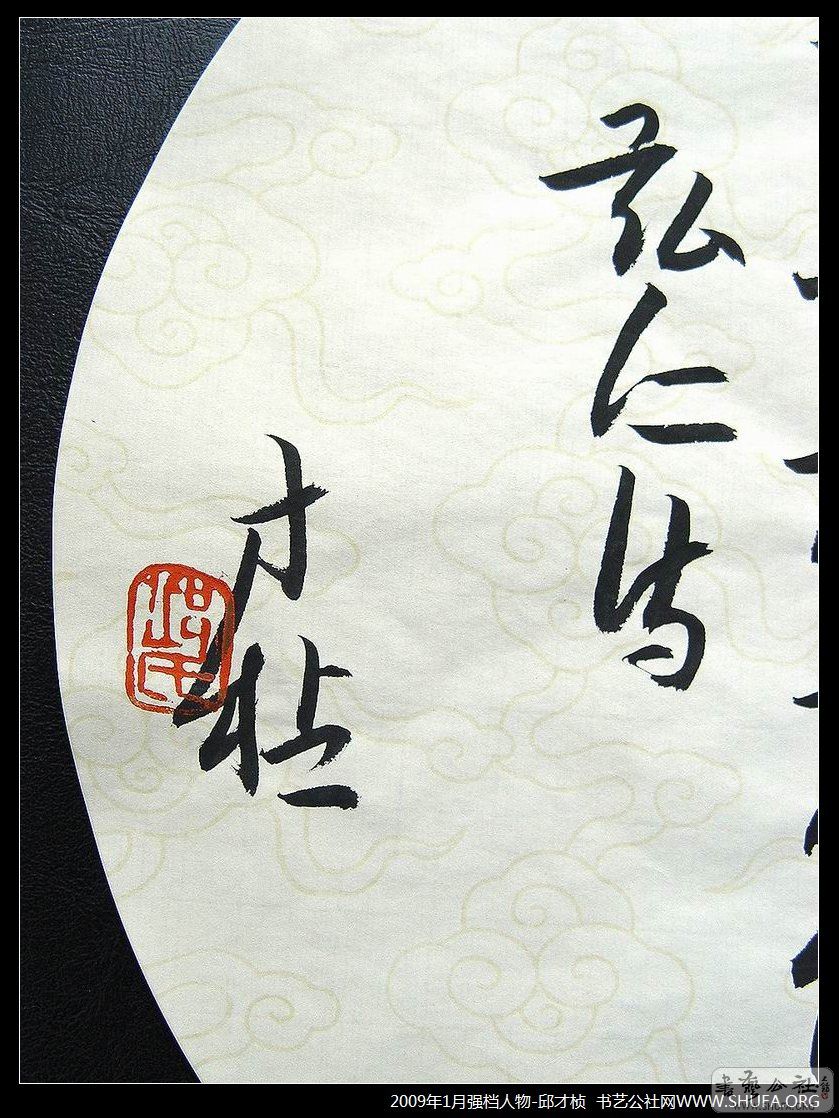 弘仁傳
才桢
邱氏
2009年1月强档人物-邱才桢 书艺公社网WWW.SHUFA.ORG
书艺公社